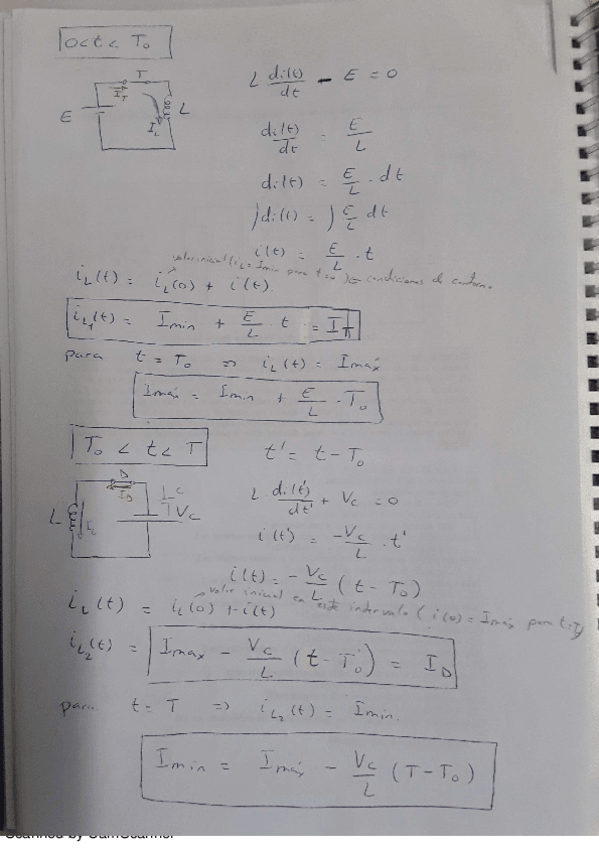 0 < t < T₀
T
I_T
E
L
I_L
L di(t)/dt - E = 0
di(t)/dt = E/L
di(t) = E/L · dt
∫di(t) = ∫ E/L dt
i(t) = E/L · t
valor inicial (i_L = Imin para t=0) condiciones de contorno.
i_L(t) = i_L(0) + i(t)
i_L₁(t) = Imin + E/L · t = I_T
para t = T₀ ⇒ i_L(t) = Imáx
Imáx = Imin + E/L · T₀
T₀ < t < T
t' = t - T₀
D
I_D
C
L
I_L
V_C
L di(t')/dt' + V_C = 0
i(t') = -V_C/L · t'
i(t) = -V_C/L (t - T₀)
valor inicial en este intervalo (i(0) = Imáx para t=T₀)
i_L(t) = i_L(0) + i(t)
i_L₂(t) = Imax - V_C/L (t - T₀) = I_D
para t = T ⇒ i_L₂(t) = Imin.
Imin = Imáx - V_C/L (T - T₀)
Scanned by CamScanner